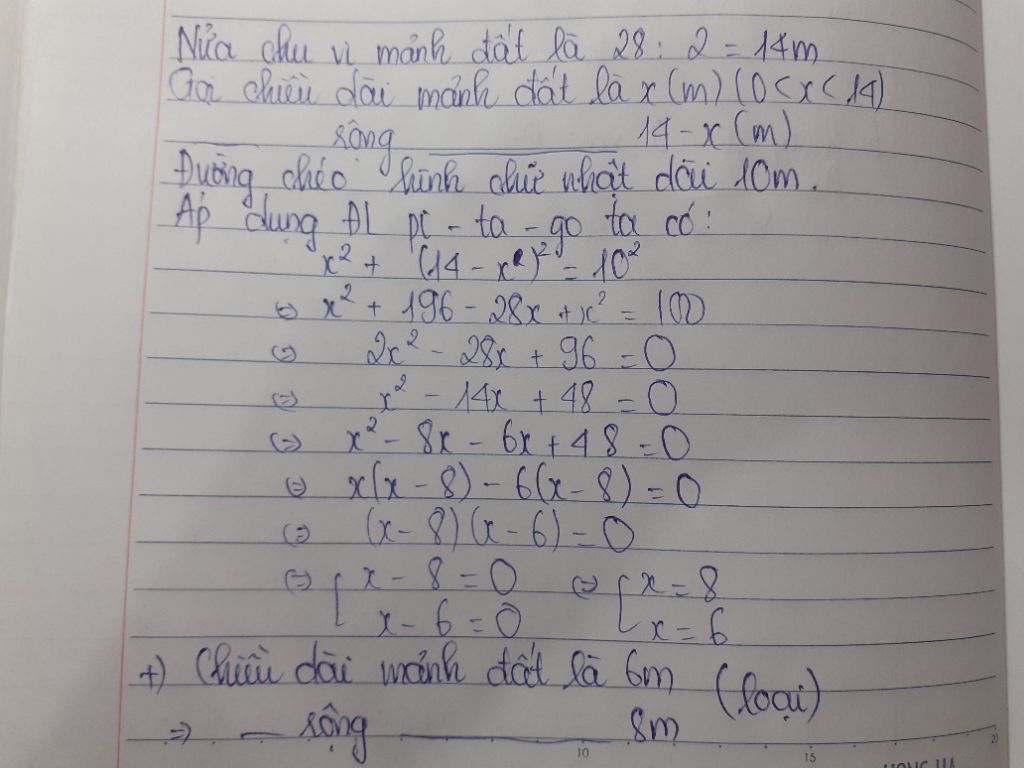 Nửa chu vi mảnh đất là 28 : 2 = 14m
Gọi chiều dài mảnh đất là x (m) (0 < x < 14)
___ rộng ___ 14 - x (m)
Đường chéo hình chữ nhật dài 10m.
Áp dụng ĐL pi - ta - go ta có:
x² + (14 - x)² = 10²
⇔ x² + 196 - 28x + x² = 100
⇔ 2x² - 28x + 96 = 0
⇔ x² - 14x + 48 = 0
⇔ x² - 8x - 6x + 48 = 0
⇔ x(x - 8) - 6(x - 8) = 0
⇔ (x - 8)(x - 6) = 0
⇔ [ x - 8 = 0 ⇔ [ x = 8
x - 6 = 0 x = 6
+) Chiều dài mảnh đất là 6m (loại)
⇒ __ rộng ___ 8m
10 15